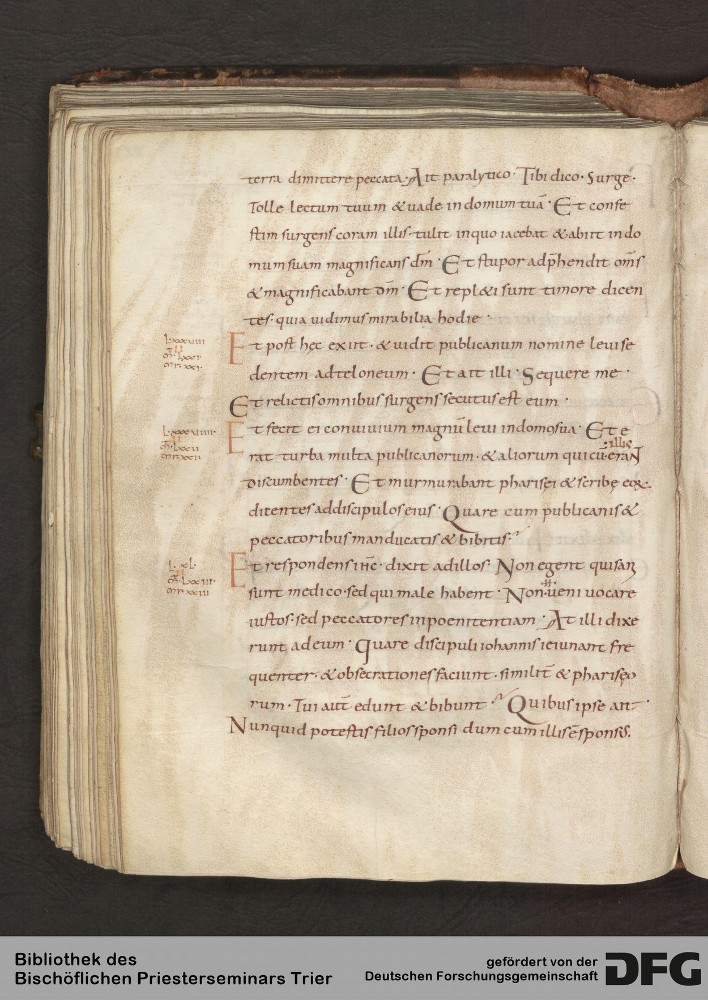 terra dimittere peccata. Ait paralytico. Tibi dico. Surge.
Tolle lectum tuum & uade in domum tuā. Et confe
stim surgens coram illis. tulit in quo iacebat & abiit in do
mum suam magnificans dm̄. Et stupor adp̄hendit om̄s
& magnificabant dm̄. Et repl&i sunt timore dicen
tes. quia uidimus mirabilia hodie.
Et post hęc exiit. & uidit publicanum nomine leui se
dentem ad teloneum. Et ait illi. Sequere me.
Et relictis omnibus surgens secutus est eum.
Et fecit ei conuiuium magnū leui in domo sua. Et e
rat turba multa publicanorum. & aliorum qui cū illis erant
discumbentes. Et murmurabant pharisęi & scribę eorū
dicentes ad discipulos eius. Quare cum publicanis &
peccatoribus manducatis & bibitis?
Et respondens ihc̄. dixit ad illos. Non egent qui sani
sunt medico. sed qui male habent. Non ueni uocare
iustos. sed peccatores in poenitentiam. At illi dixe
runt ad eum. Quare discipuli iohannis ieiunant fre
quenter. & obsecrationes faciunt. similit̄ & pharisęo
rum. Tui aut̄ edunt & bibunt? Quibus ipse ait.
Nunquid potestis filios sponsi dum cum illis ē sponsus.
Bibliothek des
Bischöflichen Priesterseminars Trier
gefördert von der
Deutschen Forschungsgemeinschaft
DFG